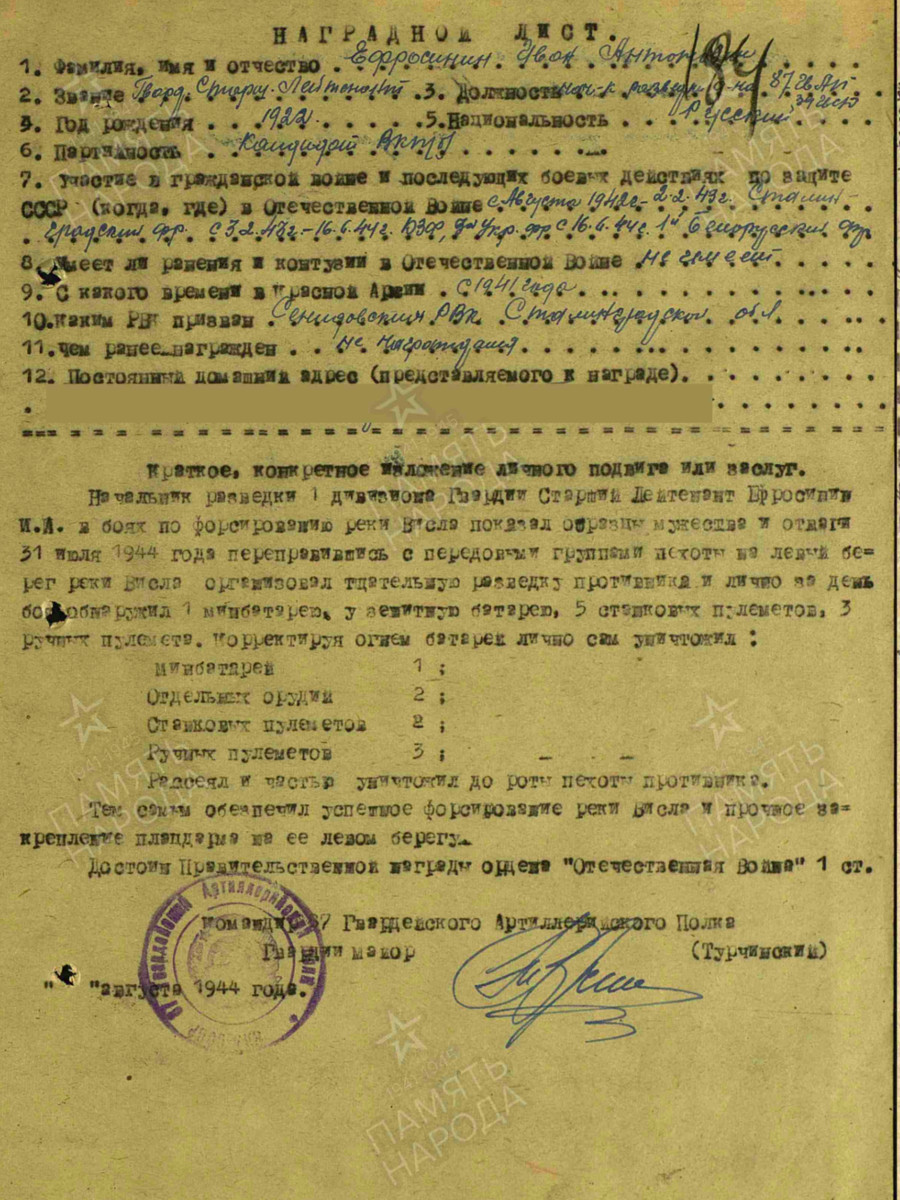 НАГРАДНОЙ ЛИСТ.
184
1. Фамилия, имя и отчество Ефросинин Иван Антонович
2. Звание Гвард. Старш. Лейтенант 3. Должность нач-к разведки д-на 87 гв АП
39 гв СД
4. Год рождения 1922 5. Национальность Русский
6. Партийность Кандидат ВКП(б)
7. участие в гражданской войне и последующих боевых действиях по защите
СССР (когда, где) в Отечественной Войне с Августа 1942г - 2.2.43г. Сталин
градский фр. с 3.2.43г. - 16.6.44г. ЮЗФ, 3й Укр. фр с 16.6.44г. 1й Белорусский фр
8. Имеет ли ранения и контузии в Отечественной Войне не имеет
9. С какого времени в Красной Армии с 1941 года
10. Каким РВК призван РВК Сталинградской обл
11. чем ранее награжден не награждался
12. Постоянный домашний адрес (представляемого к награде).
Краткое, конкретное изложение личного подвига или заслуг.
Начальник разведки 1 дивизиона Гвардии Старший Лейтенант Ефросинин
И.А. в боях по форсированию реки Висла показал образцы мужества и отваги
31 июля 1944 года переправившись с передовыми группами пехоты на левый бе-
рег реки Висла организовал тщательную разведку противника и лично за день
боя обнаружил 1 минбатарею, у зенитную батарею, 5 станковых пулеметов, 3
ручных пулемета. Корректируя огнем батарей лично сам уничтожил :
минбатарей 1 ;
Отдельных орудий 2 ;
Станковых пулеметов 2 ;
Ручных пулеметов 3 ;
Рассеял и частью уничтожил до роты пехоты противника.
Тем самым обеспечил успешное форсирование реки Висла и прочное за-
крепление плацдарма на ее левом берегу.
Достоин Правительственной награды ордена "Отечественная Война" 1 ст.
Командир 87 Гвардейского Артиллерийского Полка
Гвардии майор (Турчинский)
" "августа 1944 года.
87 Гвардейский Артиллерийский полк
ПАМЯТЬ
НАРОДА
1941-1945